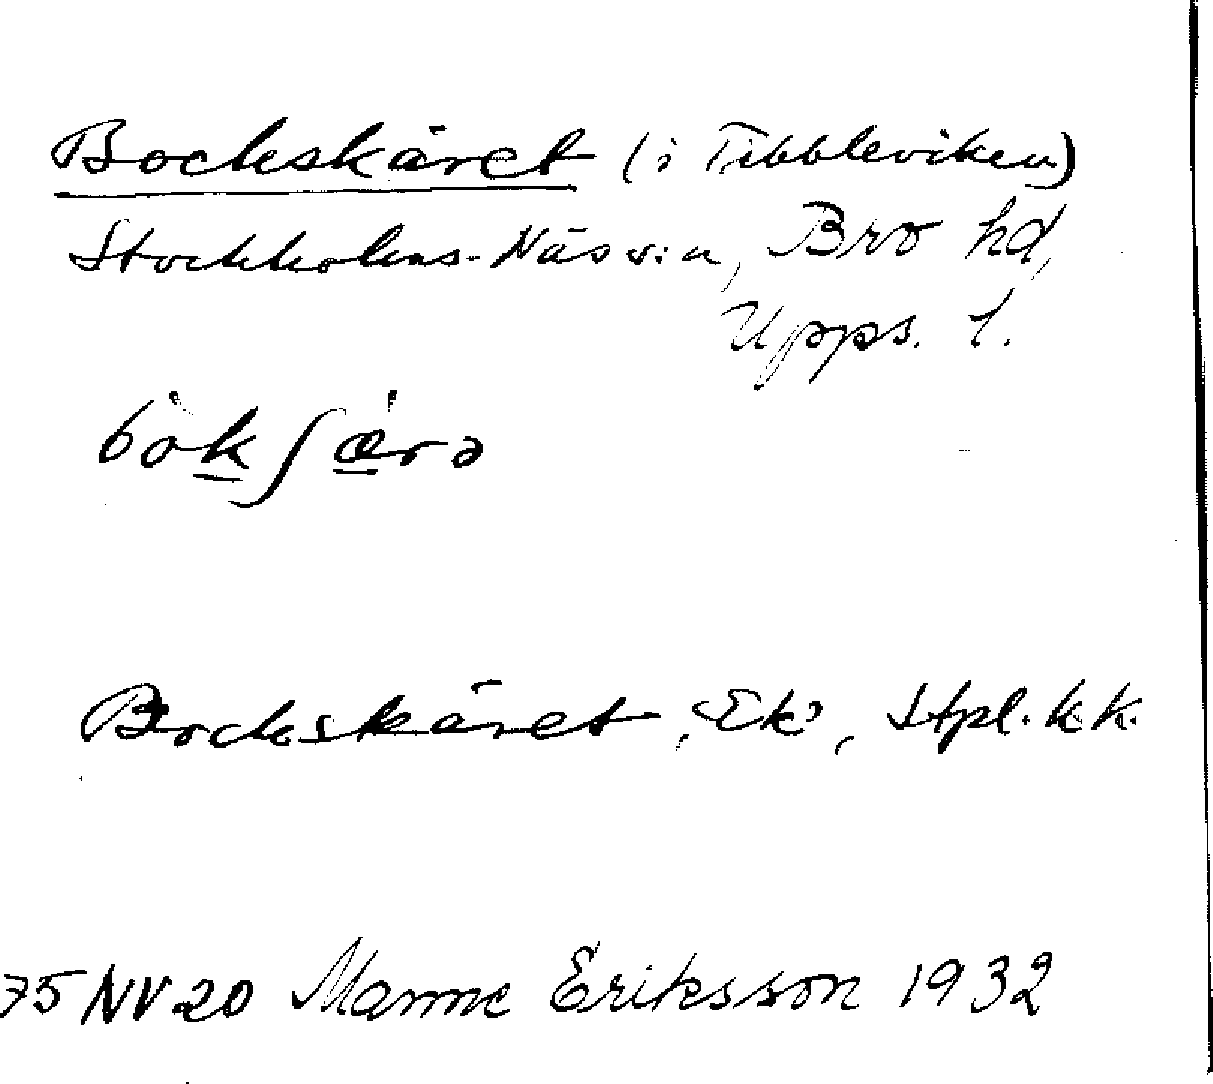 Bockskäret (i Tibbleviken)
Stockholms-Näs sn, Bro hd,
Upps. l.
bòkʃæ̀rə
Bockskäret, Ek, Stpl. k.k.
75 NV 20 Manne Eriksson 1932